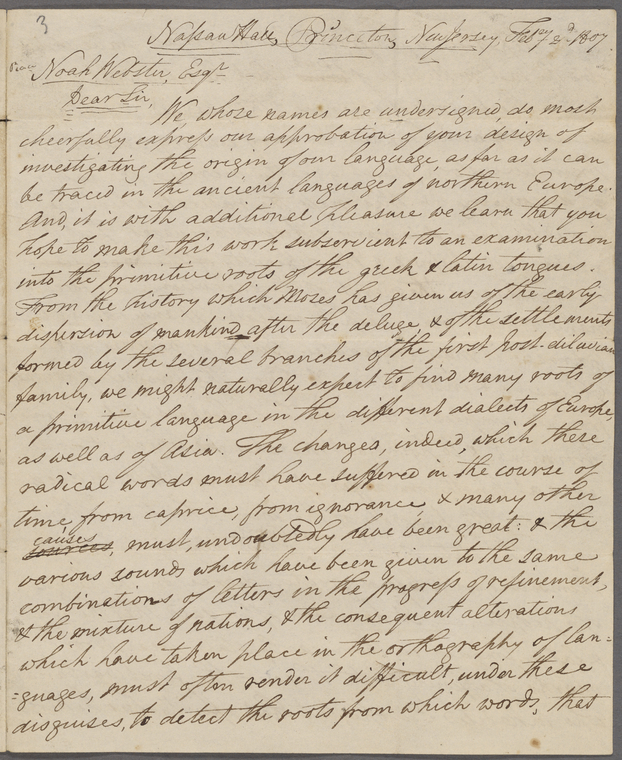 3
Nassau Hall, Princeton, New Jersey, Feb.ry 2d. 1807.
Noah Webster, Esqr.
Dear Sir,
We whose names are undersigned, do, most
cheerfully express our approbation of your design of
investigating the origin of our language, as far as it can
be traced in the ancient languages of northern Europe.
And, it is with additional pleasure we learn that you
hope to make this work subservient to an examination
into the primitive roots of the greek & latin tongues.
From the history which Moses has given us of the early
dispersion of mankind, after the deluge, & of the settlements
formed by the several branches of the first post-diluvian
family, we might naturally expect to find many roots of
a primitive language in the different dialects of Europe,
as well as of Asia. The changes, indeed, which these
radical words must have suffered in the course of
time, from caprice, from ignorance, & many other
causes
sources, must, undoubtedly have been great: & the
various sounds which have been given to the same
combinations of letters in the progress of refinement,
& the mixture of nations, & the consequent alterations
which have taken place in the orthography of lan=
=guages, must often render it difficult, under these
disguises, to detect the roots from which words, that